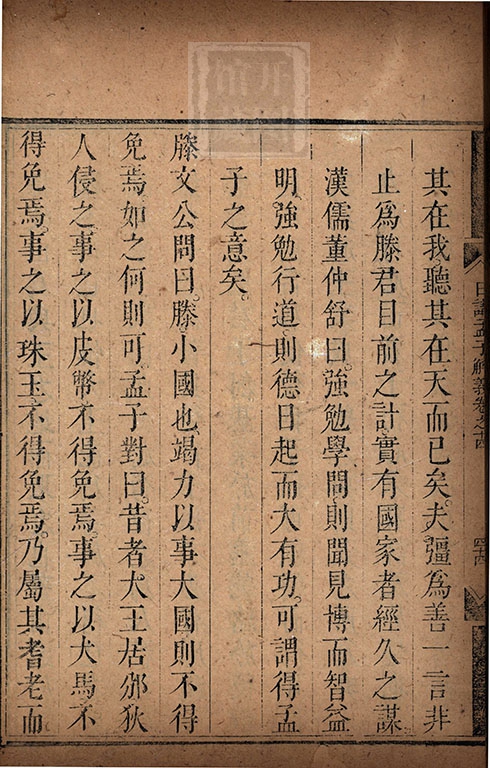 其在我聽其在天而已矣夫彊為善一言非
止為滕君目前之計實有國家者經久之謀
漢儒董仲舒曰強勉學問則聞見博而智益
明強勉行道則德日起而大有功可謂得孟
子之意矣
滕文公問曰滕小國也竭力以事大國則不得
免焉如之何則可孟子對曰昔者大王居邠狄
人侵之事之以皮幣不得免焉事之以犬馬不
得免焉事之以珠玉不得免焉乃屬其耆老而
日講孟子解義卷之十四